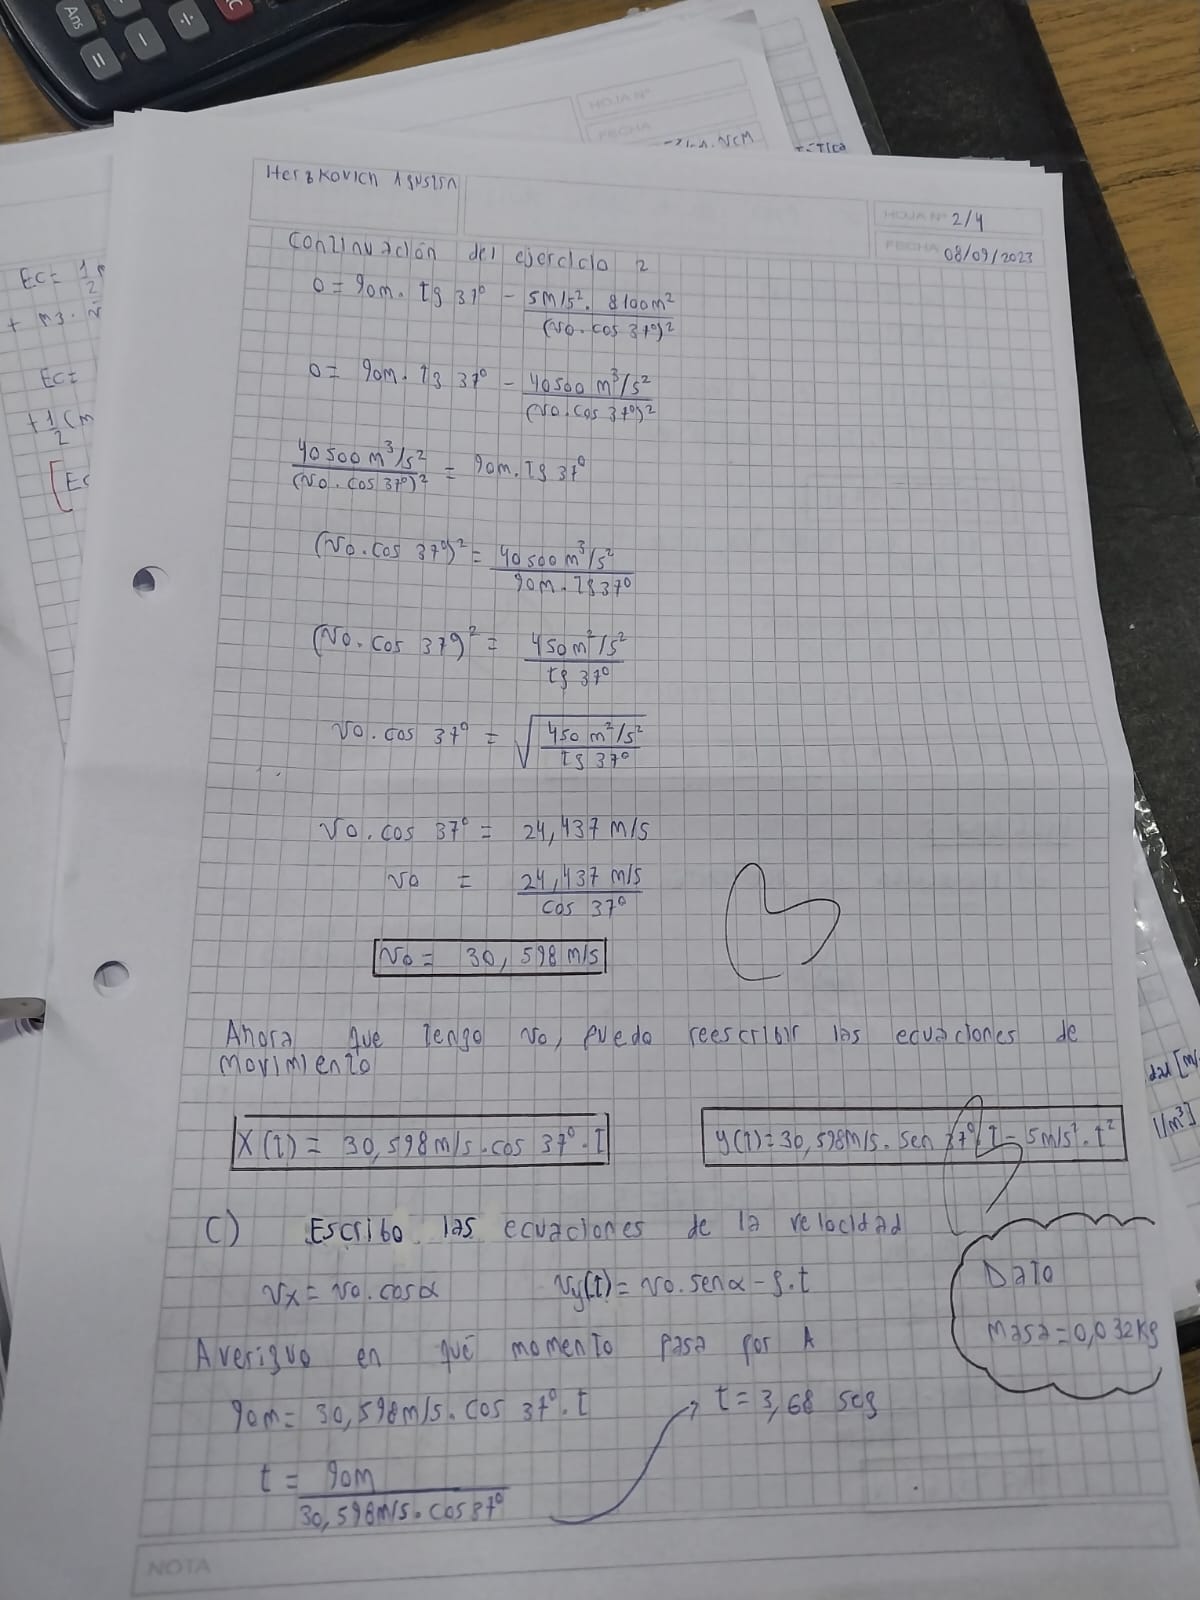 Ans
HOJA Nº
FECHA
Herzkovich Agustin
HOJA Nº 2/4
FECHA 08/09/2023
Continuación del ejercicio 2
0 = 90m. tg 37° - 5m/s². 8100m² / (vo. cos 37°)²
0 = 90m. tg 37° - 40500 m³/s² / (vo. cos 37°)²
40500 m³/s² / (vo. cos 37°)² = 90m. tg 37°
(vo. cos 37°)² = 40500 m³/s² / 90m. tg 37°
(vo. cos 37°)² = 450 m²/s² / tg 37°
vo. cos 37° = √(450 m²/s² / tg 37°)
vo. cos 37° = 24,437 m/s
vo = 24,437 m/s / cos 37°
vo = 30,598 m/s
Ahora que tengo vo, puedo reescribir las ecuaciones de
movimiento
X(t) = 30,598m/s. cos 37°. t
y(t) = 30,598m/s. sen 37°. t - 5m/s². t²
C) Escribo las ecuaciones de la velocidad
vx = vo. cosα
vy(t) = vo. senα - g. t
Dato
Masa = 0,032Kg
Averiguo en qué momento pasa por A
90m = 30,598m/s. cos 37°. t
t = 3,68 seg
t = 90m / 30,598m/s. cos 37°
NOTA
Ec = 1/2
+ m3.
Ec =
+ 1/2 (m
[Ec